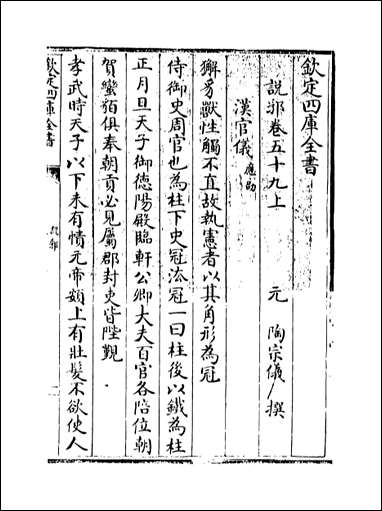 欽定四庫全書
說郛卷五十九上
元 陶宗儀 撰
漢官儀 應劭
獬豸獸性觸不直故執憲者以其角形為冠
侍御史周官也為柱下史冠法冠一曰柱後以鐵為柱
正月旦天子御德陽殿臨軒公卿大夫百官各陪位朝
賀蠻貊俱奉朝貢必見屬郡封吏皆陛覲
孝武時天子以下未有幘元帝額上有壯髮不欲使人
欽定四庫全書
說郛
一